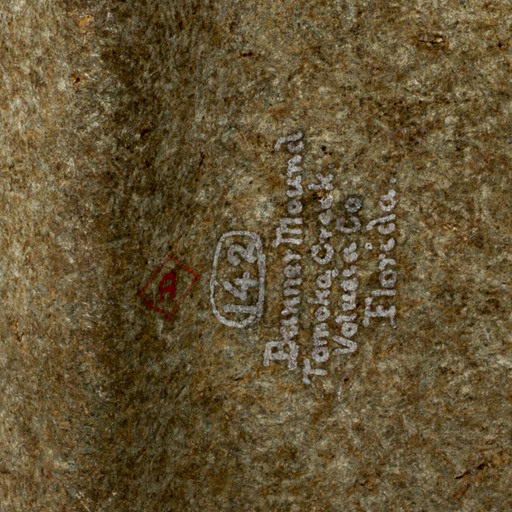 A
142
Banner Mound
Tomoka Creek
Volusia Co
Florida